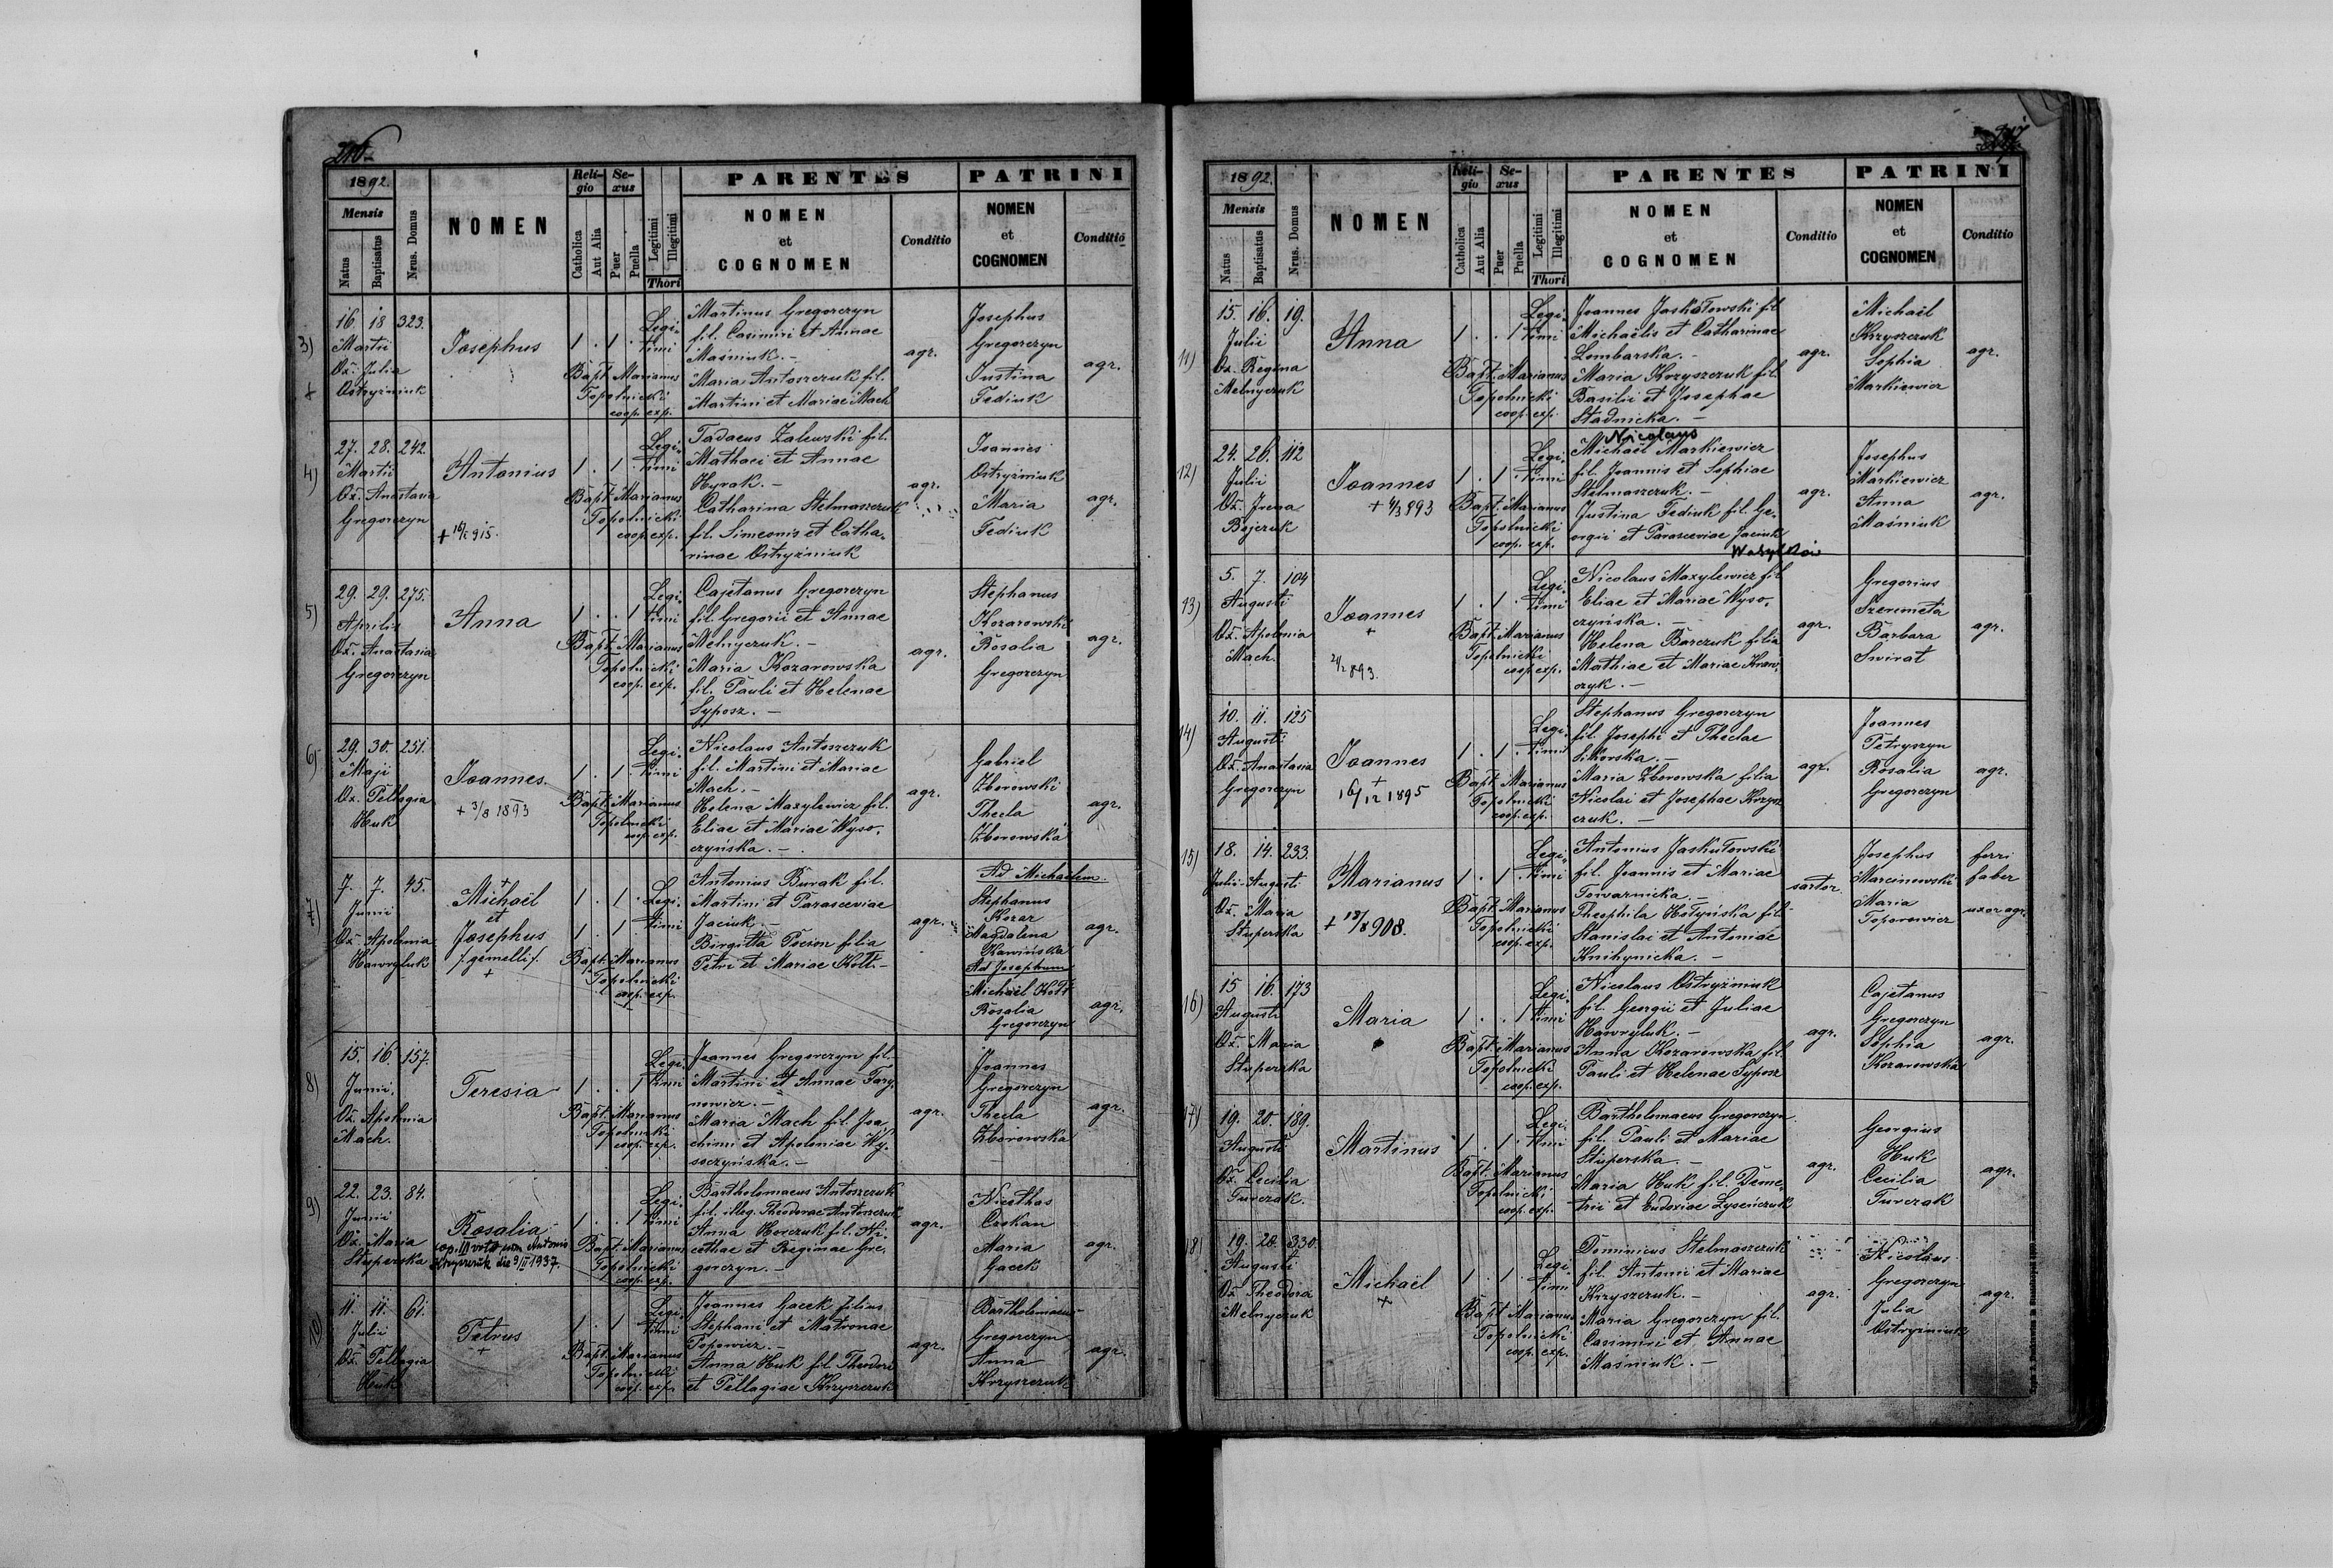 216.
1892.
Mensis
Natus
Baptisatus
Nrus. Domus
NOMEN
Reli-
gio
Catholica
Aut Alia
Se-
xus
Puer
Puella
Legitimi
Illegitimi
Thori
PARENTES
NOMEN
et
COGNOMEN
Conditio
PATRINI
NOMEN
et
COGNOMEN
Conditio
3)
16. 18 323.
Martii
Ox. Julia
Ostryżniuk
Josephus
1 . 1 .
Legi-
timi
Bapt. Marianus
Topolnicki
coop. exp.
Martinus Gregorczyn
fil. Casimiri et Annae
Maśniuk. -
Maria Antoszczuk fil.
Martini et Mariae Mach
agr.
Josephus
Gregorczyn
Justina
Fediuk
agr.
4)
27. 28. 242.
Martii
Ox. Anastasia
Gregorczyn
Antonius
Legi-
timi
1 . 1
Bapt. Marianus
Topolnicki
coop. exp.
Tadaeus Zalewski fil.
Mathaei et Annae
Hyrak. -
Catharina Stelmaszczuk
fil. Simeonis et Catha-
rinae Ostryżniuk
agr.
Joannes
Ostryżniuk
Maria
Fediuk
agr.
5)
29. 29. 275.
Aprilis
Ox. Anastasia
Gregorczyn
Anna
1 . . 1
Legi-
timi
Bapt. Marianus
Topolnicki
coop. exp.
Cajetanus Gregorczyn
fil. Gregorii et Annae
Melnyczuk. -
Maria Kozarowska
fil. Pauli et Helenae
Syposz. -
agr.
Stephanus
Kozarowski
Rosalia
Gregorczyn
agr.
6)
29. 30. 251.
Maji
Ox. Pellagia
Huk
Joannes.
+ 3/8 1893
1 . 1 .
Legi-
timi
Bapt. Marianus
Topolnicki
coop. exp.
Nicolaus Antoszczuk
fil. Martini et Mariae
Mach. -
Helena Maxylewicz fil.
Eliae et Mariae Wyso-
czyńska. -
agr.
Gabriel
Zborowski
Thecla
Zborowska
agr.
7)
7. 7. 45.
Junii
Ox. Apolonia
Hawryluk
+
Michaël
et
Josephus
/gemelli/.
+
1 . 1 .
1 . 1 .
Legi-
timi
Bapt. Marianus
Topolnicki
coop. exp.
Antonius Burak fil.
Martini et Parasceviae
Jaciuk. -
Birgitta Pocion filia
Petri et Mariae Kott. -
agr.
Ad Michaelem.
Stephanus
Kozar
Magdalena
agr.
Ad Josephum
Michaël Kott
Rosalia
Gregorczyn
agr.
8)
15. 16. 157.
Junii.
Ox. Apolonia
Mach.
Teresia
1 . . 1
Legi-
timi
Bapt. Marianus
Topolnicki
coop. exp.
Joannes Gregorczyn fil.
Martini et Annae Tary-
nowicz. -
Maria Mach fil. Joa-
chimi et Apoloniae Wy-
soczyńska. -
agr.
Joannes
Gregorczyn
Thecla
Zborowska
agr.
9)
22. 23. 84.
Junii
Ox. Maria
Stuperska
Rosalia
die 9/II 1937.
1 . . 1
Legi-
timi
Bapt. Marianus
Topolnicki
coop. exp.
Bartholomaeus Antoszczuk
fil. illeg. Theodorae Antoszczuk
Anna Horczuk fil. Ni-
cethae et Reginae Gre-
gorczyn. -
agr.
Nicethas
Maria
Gacek
agr.
10)
11. 11. 61.
Julii
Ox. Pellagia
Huk
Petrus
+
1 . 1
Legi-
timi
Bapt. Marianus
Topolnicki
coop. exp.
Joannes Gacek filius
Stephani et Matronae
Popowicz. -
Anna Huk fil. Theodori
et Pellagiae Krzyszczuk
agr.
Bartholomaeus
Gregorczyn
Anna
Krzyszczuk
agr.
1892.
Mensis
Natus
Baptisatus
Nrus. Domus
NOMEN
Reli-
gio
Catholica
Aut Alia
Se-
xus
Puer
Puella
Legitimi
Illegitimi
Thori
PARENTES
NOMEN
et
COGNOMEN
Conditio
PATRINI
NOMEN
et
COGNOMEN
Conditio
11)
15. 16. 19.
Julii
Ox. Regina
Melnyczuk
Anna
1 . . 1
Legi-
timi
Bapt. Marianus
Topolnicki
coop. exp.
Joannes Jaskułowski fil
Michaëlis et Catharinae
Lombarska. -
Maria Krzyszczuk fil.
Basilii et Josephae
Stadnicka. -
agr.
Michaël
Krzyszczuk
Sophia
Markiewicz
agr.
12)
24. 26. 112
Julii
Ox. Irena
Bojczuk
Joannes
+ 4/3 893
1 . 1
Legi-
timi
Bapt. Marianus
Topolnicki
coop. exp.
Nicolaus
Michaël Markiewicz
fil. Joannis et Sophiae
Stelmaszczuk. -
Justina Fediuk fil. Ge-
orgii et Parasceviae Jaciuk
agr.
Josephus
Markiewicz
Anna
Maśniuk
agr.
13)
5. 7. 104
Augusti
Ox. Apolonia
Mach.
Joannes
+
2/2 893.
1 . 1 .
Legi-
timi
Bapt. Marianus
Topolnicki
coop. exp.
Nicolaus Maxylewicz fil
Eliae et Mariae Wyso-
czyńska. -
Helena Barczuk filia
Mathiae et Mariae Kraw-
czyk. -
agr.
Gregorius
Szeremeta
Barbara
Swirat
agr.
14)
10. 11. 125
Augusti
Ox. Anastasia
Gregorczyn
Joannes
+
16/12 1895
1 . 1 .
Legi-
timi
Bapt. Marianus
Topolnicki
coop. exp.
Stephanus Gregorczyn
fil. Josephi et Theclae
Sikorska. -
Maria Zborowska filia
Nicolai et Josephae Krzysz
czuk. -
agr.
Joannes
Petryszyn
Rosalia
Gregorczyn
agr.
15)
18. 14. 233.
Julii Augusti
Ox. Maria
Stuperska
Marianus
+ 18/8 908.
1 . 1 .
Legi-
timi
Bapt. Marianus
Topolnicki
coop. exp.
Antonius Jaskułowski
fil. Joannis et Mariae
Towarnicka. -
Theophila Hołyńska fil.
Stanislai et Antoniae
Knihynicka. -
sartor.
Josephus
Marcinowski
Maria
Toporowicz
ferri
faber
uxor agr.
16)
15 16. 173
Augusti
Ox. Maria
Stuperska
Maria
1 . . 1
Legi-
timi
Bapt. Marianus
Topolnicki
coop. exp.
Nicolaus Ostryżniuk
fil. Georgii et Juliae
Hawryluk. -
Anna Kozarowska fil.
Pauli et Helenae Syposz
agr.
Cajetanus
Gregorczyn
Sophia
Kozarowska
agr.
17)
19. 20. 189.
Augusti
Ox. Cecilia
Turczak.
Martinus
1 . 1 .
Legi-
timi
Bapt. Marianus
Topolnicki
coop. exp.
Bartholomaeus Gregorczyn
fil. Pauli et Mariae
Stuperska. -
Maria Huk fil. Deme-
trii et Eudoxiae Łysenczuk
agr.
Georgius
Huk
Cecilia
Turczak
agr.
18)
19. 20. 330.
Augusti
Ox Theodora
Melnyczuk
Michaël
+
1 . 1 .
Legi-
timi
Bapt. Marianus
Topolnicki
coop. exp.
Dominicus Stelmaszczuk
fil. Antonii et Mariae
Krzyszczuk. -
Maria Gregorczyn fil.
Casimiri et Annae
Maśniuk. -
agr.
Nicolaus
Gregorczyn
Julia
Ostryżniuk
agr.